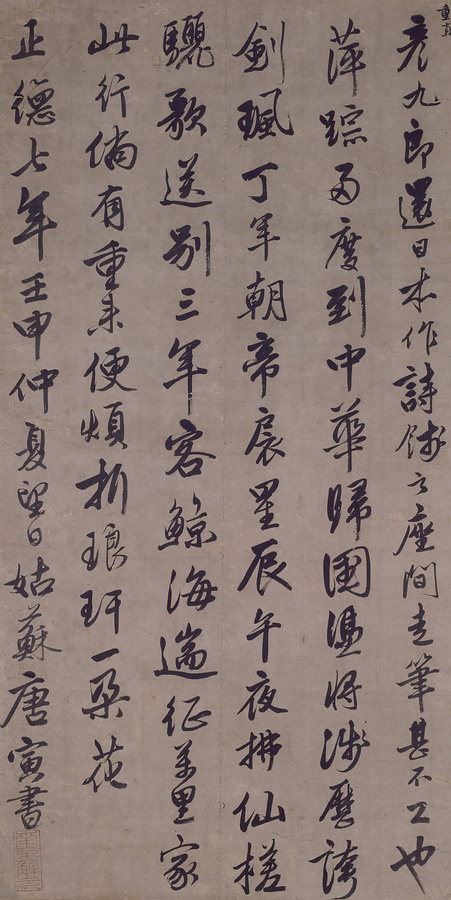 彦九郎還日本作詩餞之座間走筆甚不工也
萍踪兩度到中華歸國憑將涉歷誇
劍珮丁年朝帝扆星辰午夜拂仙槎
驪歌送別三年客鯨海遄征萬里家
此行倘有重來便煩折琅玕一朵花
正德七年壬申仲夏望日姑蘇唐寅書